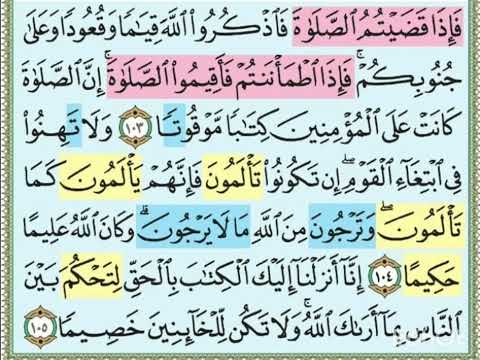 فَإِذَا قَضَيْتُمُ الصَّلَوٰةَ فَاذْكُرُوا اللَّهَ قِيَامًا وَقُعُودًا وَعَلَىٰ
جُنُوبِكُمْ ۚ فَإِذَا اطْمَأْنَنتُمْ فَأَقِيمُوا الصَّلَوٰةَ ۚ إِنَّ الصَّلَوٰةَ
كَانَتْ عَلَى الْمُؤْمِنِينَ كِتَابًا مَّوْقُوتًا ١٠٣ وَلَا تَهِنُوا
فِي ابْتِغَاءِ الْقَوْمِ ۖ إِن تَكُونُوا تَأْلَمُونَ فَإِنَّهُمْ يَأْلَمُونَ كَمَا
تَأْلَمُونَ ۖ وَتَرْجُونَ مِنَ اللَّهِ مَا لَا يَرْجُونَ ۗ وَكَانَ اللَّهُ عَلِيمًا
حَكِيمًا ١٠٤ إِنَّا أَنزَلْنَا إِلَيْكَ الْكِتَابَ بِالْحَقِّ لِتَحْكُمَ بَيْنَ
النَّاسِ بِمَا أَرَىٰكَ اللَّهُ ۚ وَلَا تَكُن لِّلْخَائِنِينَ خَصِيمًا ١٠٥